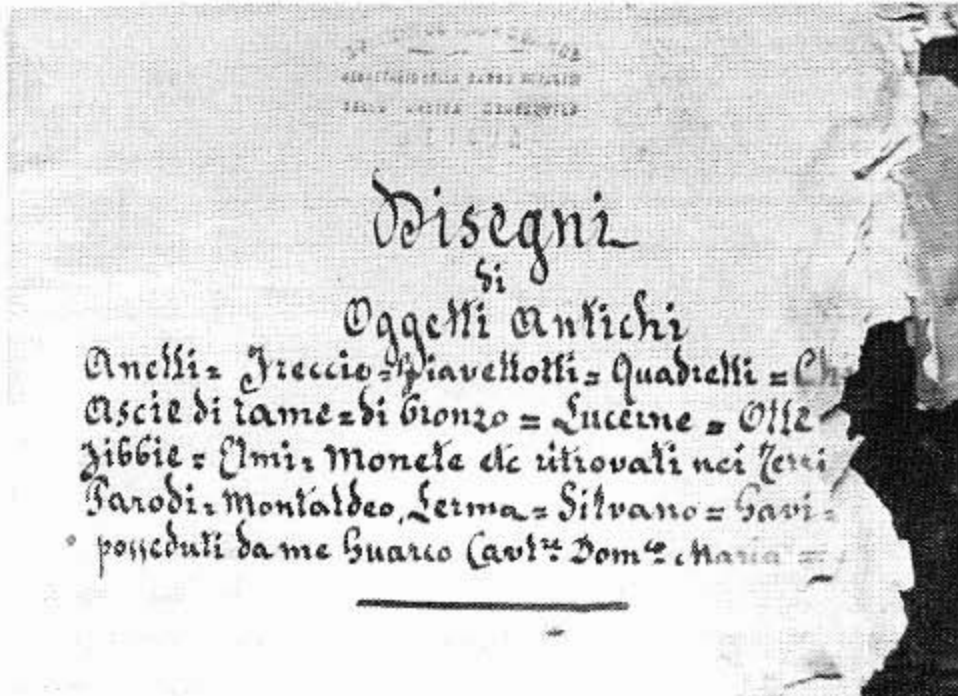 Disegni
di
Oggetti Antichi
Anelli = Freccie = Giavellotti = Quadrelli = Ch
Ascie di rame = di bronzo = Lucerne = Olle
Fibbie = Elmi = Monete etc ritrovati nei Terri
Parodi = Montaldeo, Lerma = Silvano = Gavi =
posseduti da me Guarco Cav.re Dom.co Maria =